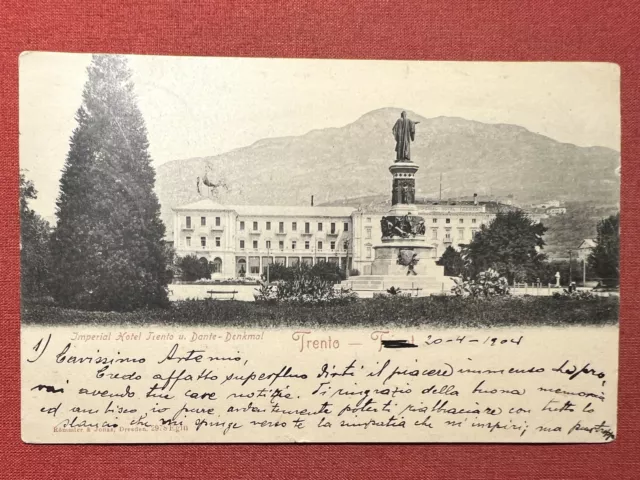 Imperial Hotel Trento u. Dante-Denkmal
Trento – 20-4-1904
1) Carissimo Artemio,
Credo affatto superfluo dirti il piacere immenso ho pro
vai avendo tue care notizie. Ti ringrazio della buona memoria
ed anch'io pure, ardentemente poterti riabbracciare con tutto lo
slancio che mi spinge verso te la simpatia che m'inspiri; ma
Römmler & Jonas, Dresden.